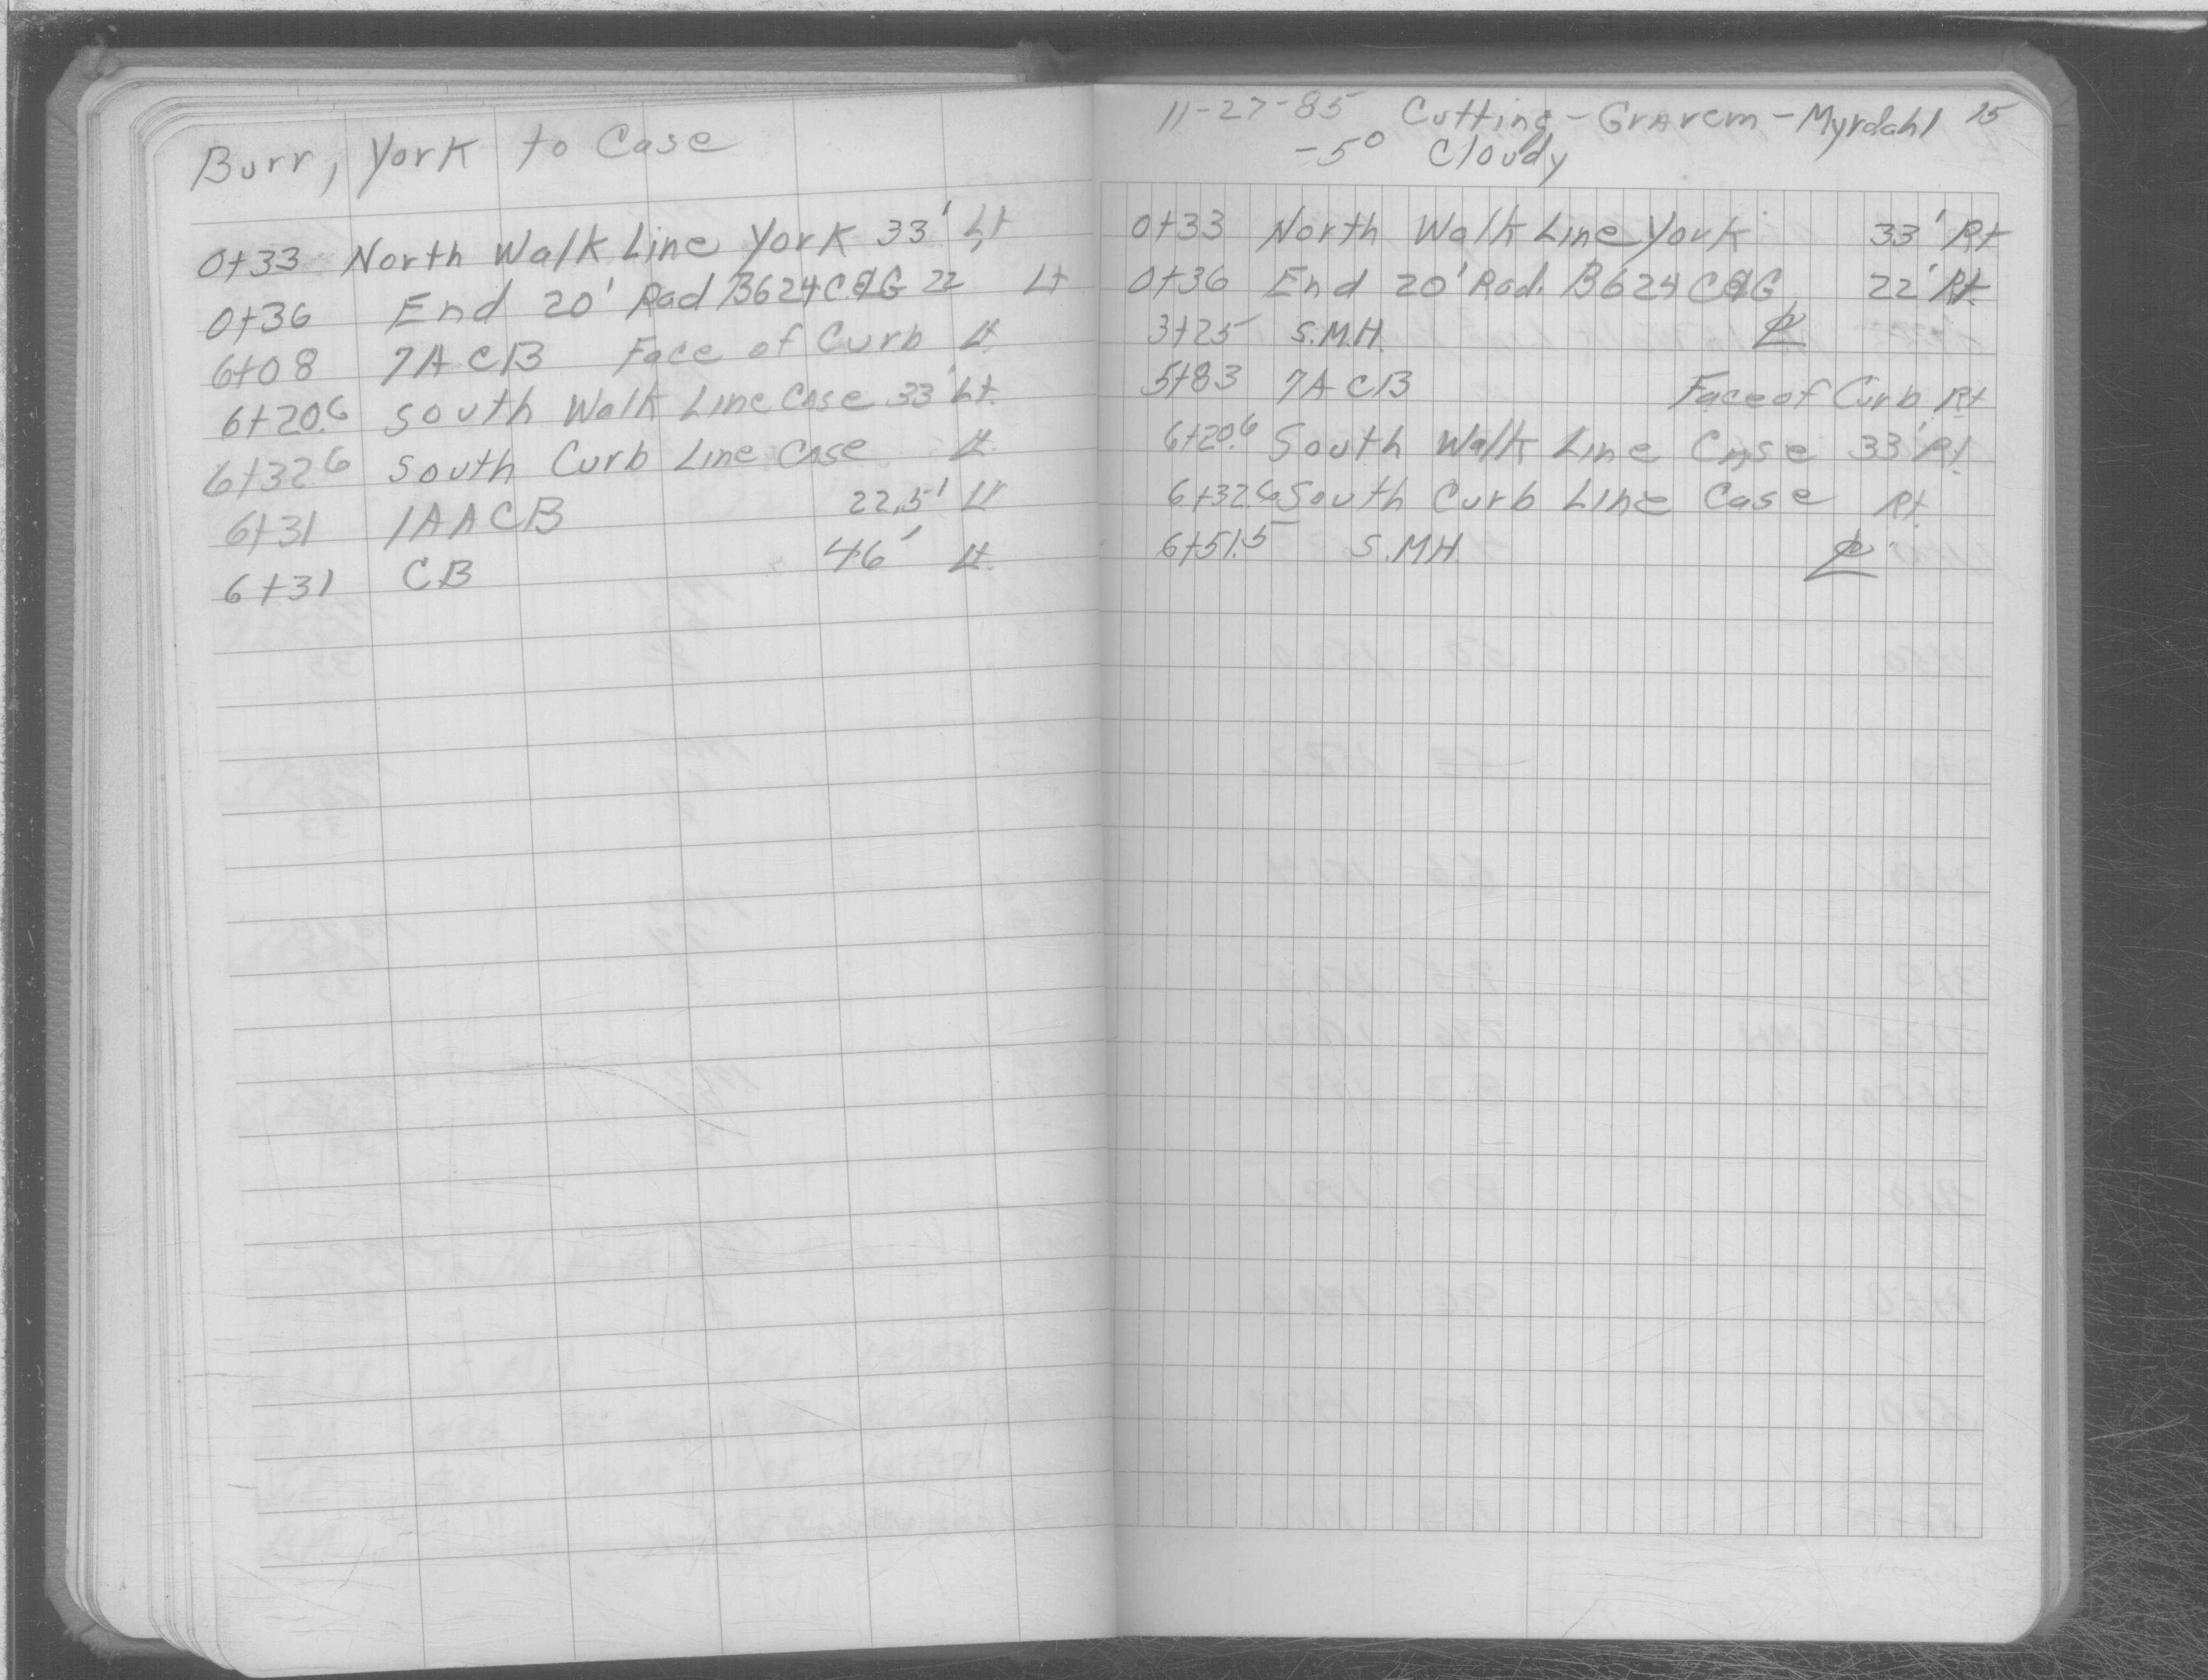 Burr, York to Case
0+33 North Walk Line York 33' Lt
0+36 End 20' Rad B624 C&G 22 Lt
6+08 7A CB Face of Curb Lt.
6+20.6 South Walk Line Case 33' Lt.
6+32.6 South Curb Line Case Lt.
6+31 1AA CB 22.5' Lt
6+31 CB 46' Lt.
11-27-85 Cutting - Gravem - Myrdahl 15
-5° Cloudy
0+33 North Walk Line York 33' Rt
0+36 End 20' Rad. B624 C&G 22' Rt.
3+25 S.M.H. ℄
5+83 7A CB Face of Curb Rt
6+20.6 South Walk Line Case 33' Rt.
6+32.6 South Curb Line Case Rt.
6+51.5 S.MH. ℄